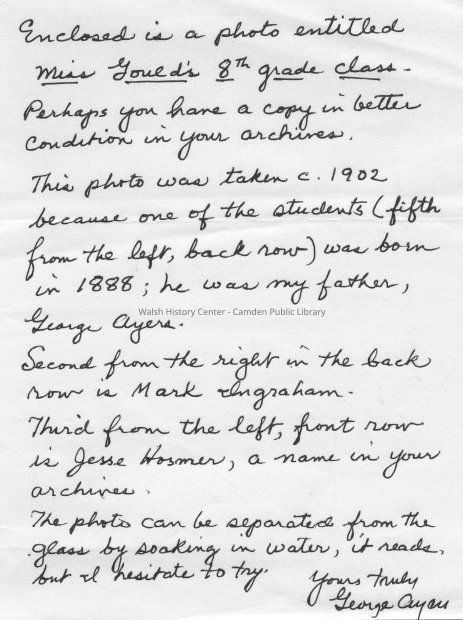 Enclosed is a photo entitled
Miss Gould's 8th grade class.
Perhaps you have a copy in better
condition in your archives.
This photo was taken c. 1902
because one of the students (fifth
from the left, back row) was born
in 1888; he was my father,
Walsh History Center - Camden Public Library
George Ayers.
Second from the right in the back
row is Mark Ingraham.
Third from the left, front row
is Jesse Hosmer, a name in your
archives.
The photo can be separated from the
glass by soaking in water, it reads,
but I hesitate to try.
Yours truly
George Ayers